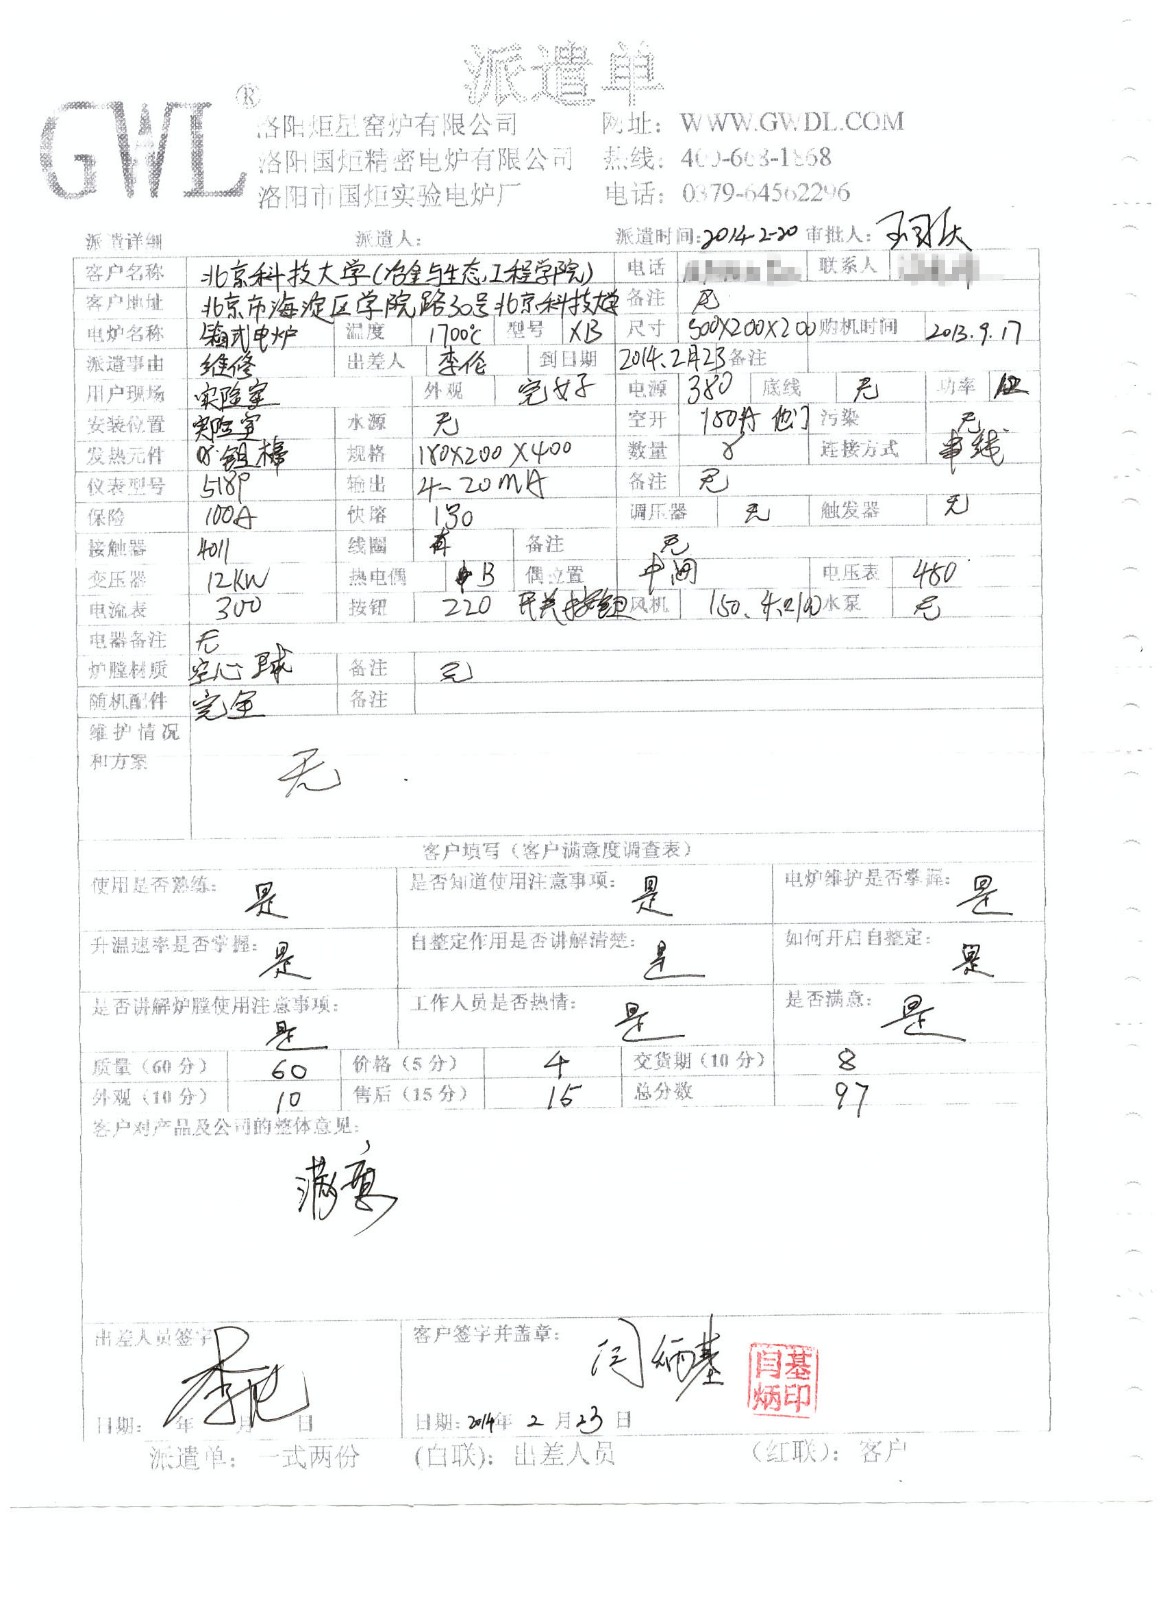 派遣单
GWL®
洛阳炬星窑炉有限公司 网址：WWW.GWDL.COM
洛阳国炬精密电炉有限公司 热线：400-663-1868
洛阳市国炬实验电炉厂 电话：0379-64562296
派遣详细 派遣人： 派遣时间：2014-2-20 审批人：
客户名称 北京科技大学（冶金与生态工程学院） 电话 联系人
客户地址 北京市海淀区学院路30号北京科技大学 备注 无
电炉名称 箱式电炉 温度 1700℃ 型号 XB 尺寸 500X200X200 购机时间 2013.9.17
派遣事由 维修 出差人 李伦 到日期 2014.2月23 备注
用户现场 实验室 外观 完好 电源 380 底线 无 功率 12
安装位置 实验室 水源 无 空开 150A 他门 污染 无
发热元件 硅钼棒 规格 180X200X400 数量 8 连接方式 串线
仪表型号 518P 输出 4-20mA 备注 无
保险 100A 快熔 130 调压器 无 触发器 无
接触器 4011 线圈 有 备注 无
变压器 12KW 热电偶 B 偶位置 中间 电压表 450
电流表 300 按钮 220 开关按钮 风机 150. 水泵 无
电器备注 无
炉膛材质 空心球 备注 无
随机配件 完全 备注
维护情况
和方案 无
客户填写（客户满意度调查表）
使用是否熟练：是 是否知道使用注意事项：是 电炉维护是否掌握：是
升温速率是否掌握：是 自整定作用是否讲解清楚：是 如何开启自整定：是
是否讲解炉膛使用注意事项：是 工作人员是否热情：是 是否满意：是
质量（60分） 60 价格（5分） 4 交货期（10分） 8
外观（10分） 10 售后（15分） 15 总分数 97
客户对产品及公司的整体意见：
满意
出差人员签字 李伦 客户签字并盖章：闫炳基 闫炳基印
日期： 年 月 日 日期：2014年 2 月 23 日
派遣单：一式两份 （白联）：出差人员 （红联）：客户